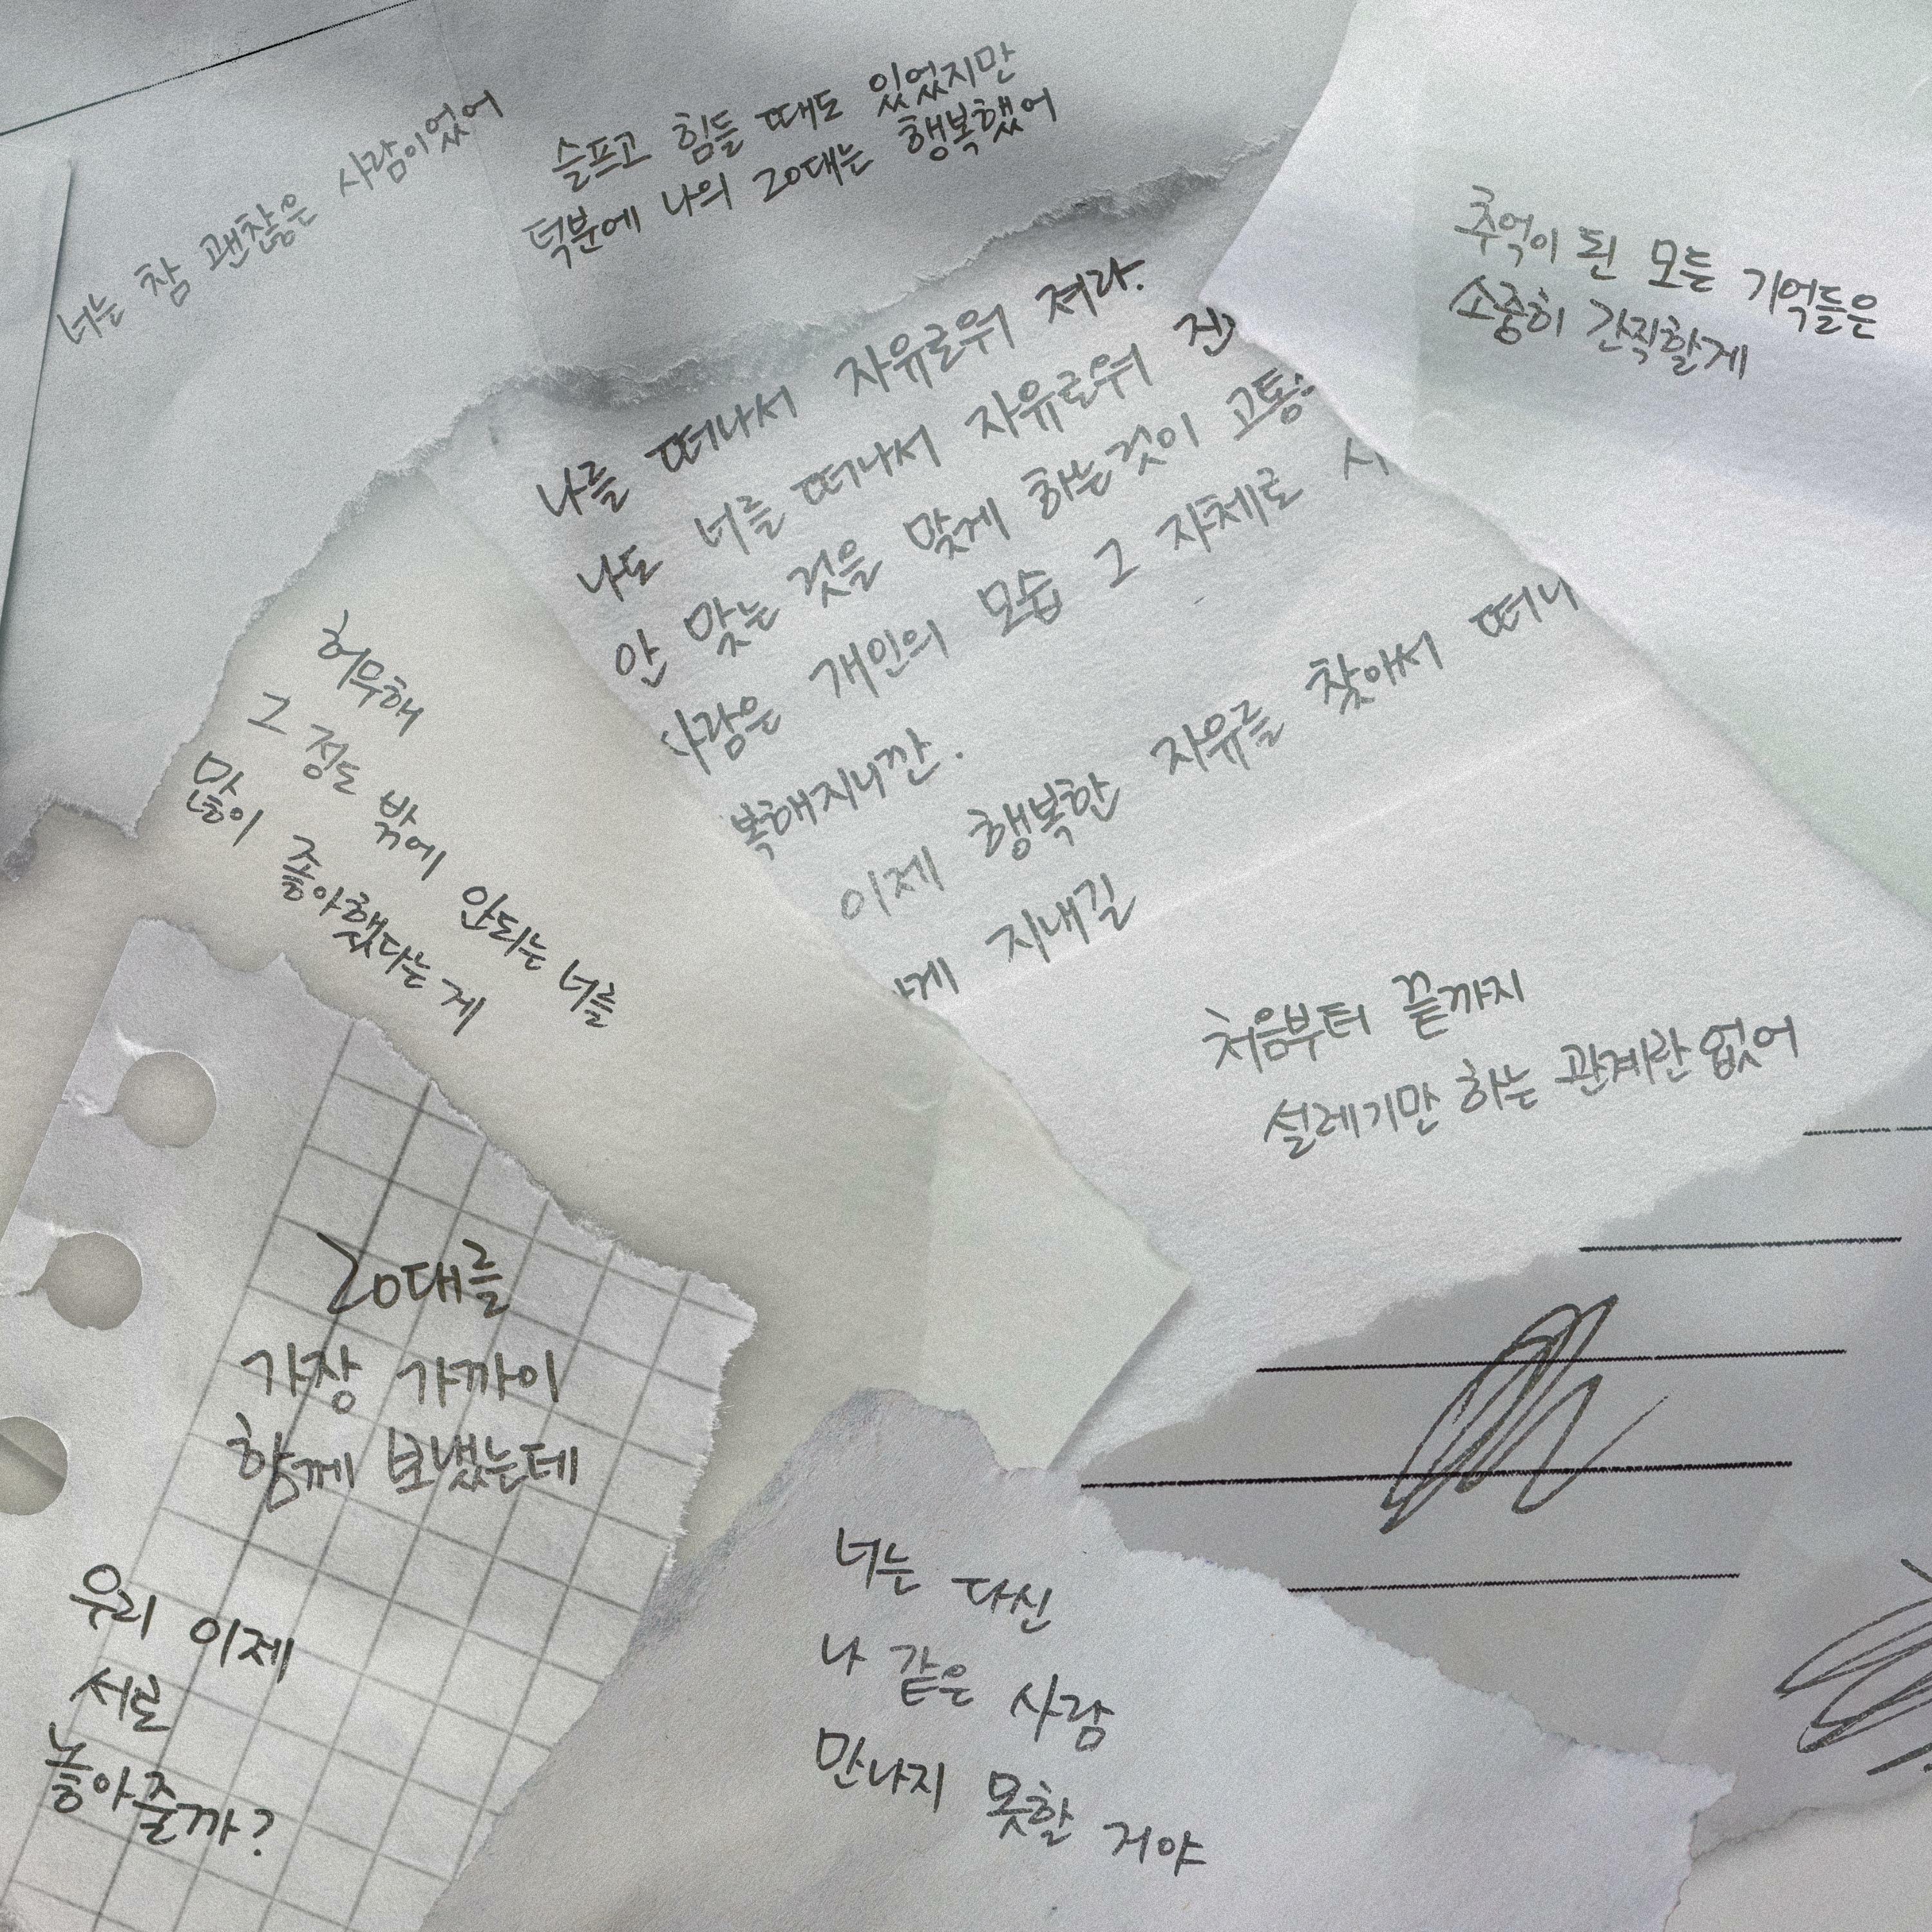 너는 참 괜찮은 사람이었어
슬프고 힘들 때도 있었지만
덕분에 나의 20대는 행복했어
추억이 된 모든 기억들은
소중히 간직할게
나를 떠나서 자유로워 져라.
나도 너를 떠나서 자유로워
안 맞는 것을 맞게 하는것이
사람은 개인의 모습 그 자체로
복해지니깐.
이제 행복한 자유를 찾아서 떠나
게 지내길
허무해
그 정도 밖에 안되는 너를
많이 좋아했다는 게
처음부터 끝까지
설레기만 하는 관계란 없어
20대를
가장 가까이
함께 보냈는데
우리 이제
서로
놓아줄까?
너는 다신
나 같은 사람
만나지 못할 거야